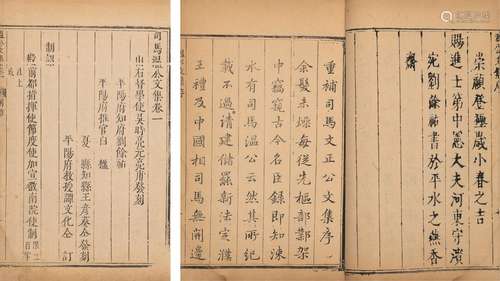 崇禎登極歲小春之吉
賜進士第中憲大夫河東守濱
宛劉餘祐書於平水之燕香
齋
重補司馬文正公文集序
余髮未燥每從先樞部鄴架
中竊窺古今名臣錄即知涑
水有司馬溫公云然其所紀
載不過請建儲罷新法寅濮
王禮及中國相司馬無開邊
司馬溫公文集卷一
山右督學使吳時亮元亮甫發刻
平陽府知府劉餘祐
平陽府推官白
夏縣知縣王彥葵仝發刻
平陽府教授譚文化仝訂
制詔
殿前都指揮使節度使加宣徽南院使制